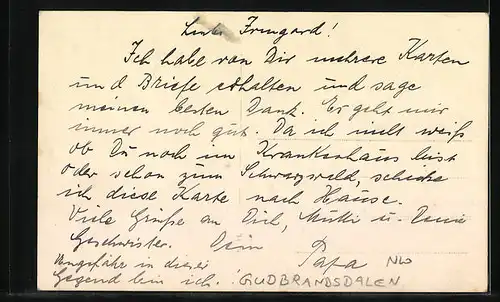 Liebe Irmgard!
Ich habe von Dir mehrere Karten
und Briefe erhalten und sage
meinen besten Dank. Es geht mir
immer noch gut. Da ich nicht weiß
ob Du noch im Krankenhaus bist
oder schon zum Schwarzwald, schicke
ich diese Karte nach Hause.
Viele Grüße an Dich, Mutti u. Deine
Geschwister. Dein Papa
Ungefähr in dieser
Gegend bin ich! GUDBRANDSDALEN
NW